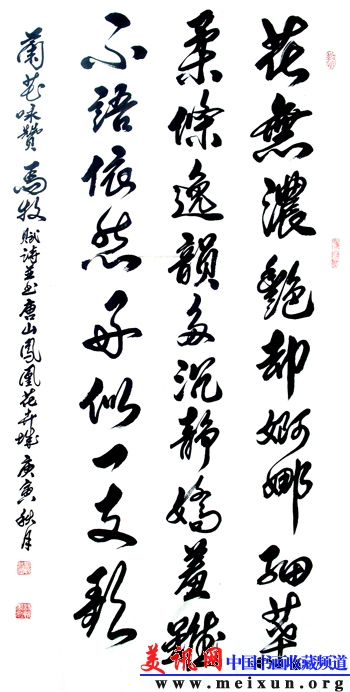 花無濃艷却婀娜細葉
柔條逸韻多沉靜嬌羞雖
不語依然好似一支歌
蘭花咏贊 馬牧賦詩並書唐山鳳凰花卉城庚寅秋月
美讯网 中国书画收藏频道
www.meixun.org